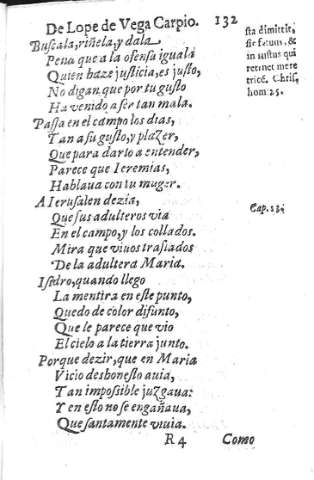 De Lope de Vega Carpio. 132
Buscala, riñela, y dala
Pena que a la ofensa iguala
Quien haze justicia, es justo,
No digan que por tu gusto
Ha venido a ser tan mala.
Passa en el campo los dias,
Tan a su gusto, y plazer,
Que para darlo a entender,
Parece que Ieremias,
Hablaua con tu muger.
A Ierusalen dezia,
Que sus adulteros via
En el campo, y los collados.
Mira que viuos traslados
De la adultera Maria.
Isidro, quando llego
La mentira en este punto,
Quedo de color difunto,
Que le parece que vio
El cielo a la tierra junto.
Porque dezir, que en Maria
Vicio deshonesto auia,
Tan impossible juzgaua:
Y en esto no se engañaua,
Que santamente viuia.
R 4 Como
sta dimittit,
sic fatuus, &
iniustus qui
retinet mere
tricē, Chris,
hom. 25.
Cap. 13.